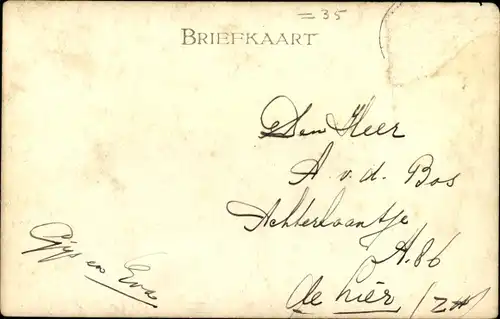 = 35
BRIEFKAART
Den Heer
A. v. d. Bos
Achterlaantje
A. 86
de Lier / ZH
Gijs en Eva